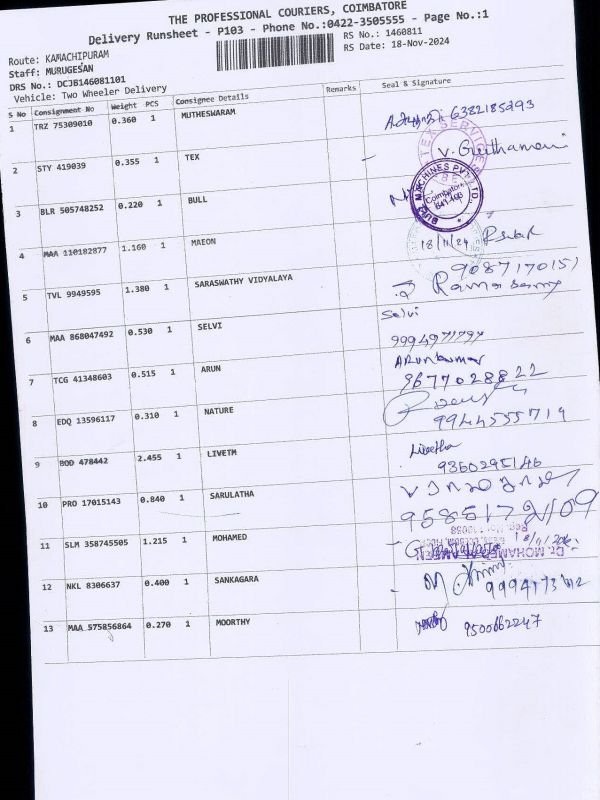 THE PROFESSIONAL COURIERS, COIMBATORE
Delivery Runsheet - P103 - Phone No.:0422-3505555 - Page No.:1
Route: KAMACHIPURAM
RS No.: 1460811
Staff: MURUGESAN
RS Date: 18-Nov-2024
DRS No.: DCJB146081101
Vehicle: Two Wheeler Delivery
S No Consignment No Weight PCS Consignee Details Remarks Seal & Signature
1 TRZ 75309010 0.360 1 MUTHESWARAM 6382185293
2 STY 419039 0.355 1 TEX V. Geethamani
TEX SERVICES
3 BLR 505748252 0.220 1 BULL
MACHINES PVT LTD. Coimbatore
4 MAA 110182877 1.160 1 MAEON 18/11/24
9087170151
5 TVL 9949595 1.380 1 SARASWATHY VIDYALAYA
6 MAA 868047492 0.530 1 SELVI Selvi
7 TCG 41348603 0.515 1 ARUN Arunkumar
9677028822
8 EDQ 13596117 0.310 1 NATURE
9944555714
9 BOD 478442 2.455 1 LIVETM Livetha
9360295146
10 PRO 17015143 0.840 1 SARULATHA
11 SLM 358745505 1.215 1 MOHAMED
Dr. MOHAMED
12 NKL 8306637 0.400 1 SANKAGARA
13 MAA 575856864 0.270 1 MOORTHY 9500662247